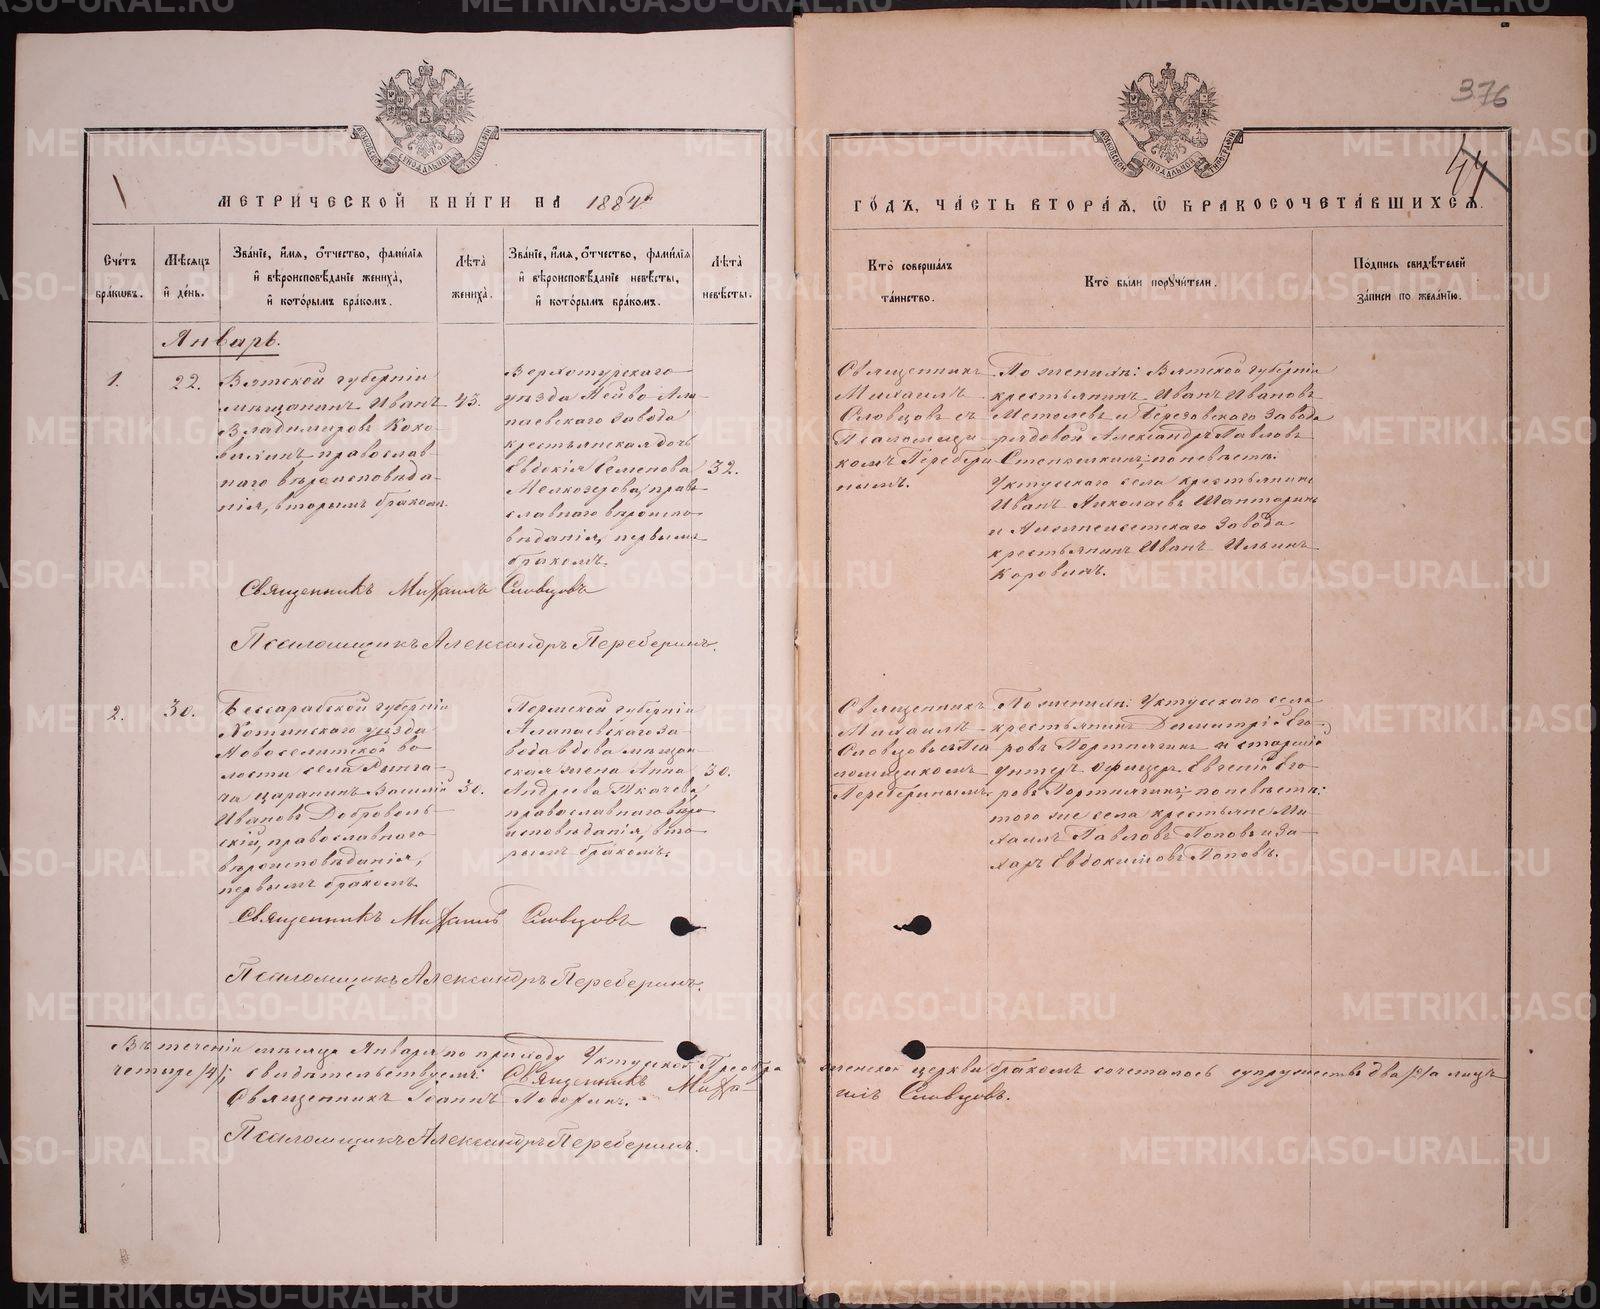 376
44
МЕТРИЧЕСКОЙ КНИГИ НА 1884й
ГОДЪ, ЧАСТЬ ВТОРАЯ, Ѡ БРАКОСОЧЕТАВШИХСЯ.
Счетъ браковъ.
Мѣсяцъ и день.
Званіе, имя, отчество, фамилія и вѣроисповѣданіе жениха, и которымъ бракомъ.
Лѣта жениха.
Званіе, имя, отчество, фамилія и вѣроисповѣданіе невѣсты, и которымъ бракомъ.
Лѣта невѣсты.
Кто совершалъ таинство.
Кто были поручители.
Подпись свидѣтелей записи по желанію.
Январь.
1.
22.
Вятской губерніи
мѣщанинъ Иванъ
Владимировъ Кохо-
вихинъ, православ-
наго вѣроисповѣда-
нія, вторымъ бракомъ.
43.
Верхотурскаго
уѣзда Нейво Ала-
паевскаго завода
крестьянская дочь
Евдокія Семенова
Мелкозерова, право-
славнаго вѣроиспо-
вѣданія, первымъ
бракомъ.
32.
Священникъ
Михаилъ
Словцовъ съ
Псаломщи-
комъ Перебери-
нымъ.
По женихѣ: Вятской губерніи
крестьянинъ Иванъ Ивановъ
и Березовскаго завода
рядовой Александръ Павловъ
по невѣстѣ:
Уктусскаго села крестьянинъ
Иванъ Николаевъ
завода
крестьянинъ Иванъ Ильинъ
Коровинъ.
Священникъ Михаилъ Словцовъ
Псаломщикъ Александръ Переберинъ.
2.
30.
Бессарабской губерніи
Хотинскаго уѣзда
Новоселитской во-
лости села Рынга-
ча царанинъ Василій
Ивановъ Доброволь-
скій, православнаго
вѣроисповѣданія,
первымъ бракомъ.
30.
Пермской губерніи
Алапаевскаго за-
вода вдова мѣщан-
ская жена Анна
Андреева Ткачева,
православнаго вѣро-
исповѣданія, вто-
рымъ бракомъ.
30.
Священникъ
Михаилъ
Словцовъ съ Пса-
ломщикомъ
Переберинымъ.
По женихѣ: Уктусскаго села
крестьянинъ Димитрій Его-
ровъ Портнягинъ и старшій
унтеръ офицеръ Евгеній Его-
ровъ Портнягинъ; по невѣстѣ:
того же села крестьяне Ми-
хаилъ Павловъ Поповъ и За-
харъ Евдокимовъ Поповъ.
Священникъ Михаилъ Словцовъ
Псаломщикъ Александръ Переберинъ.
Въ теченіи мѣсяца Января по приходу Уктусской Преобра-
женской церкви бракомъ сочеталось супружества два /2/ а лицъ
четыре /4/; свидѣтельствуемъ: Священникъ Миха-
илъ Словцовъ.
Священникъ Іоаннъ
Псаломщикъ Александръ Переберинъ.
METRIKI.GASO-URAL.RU